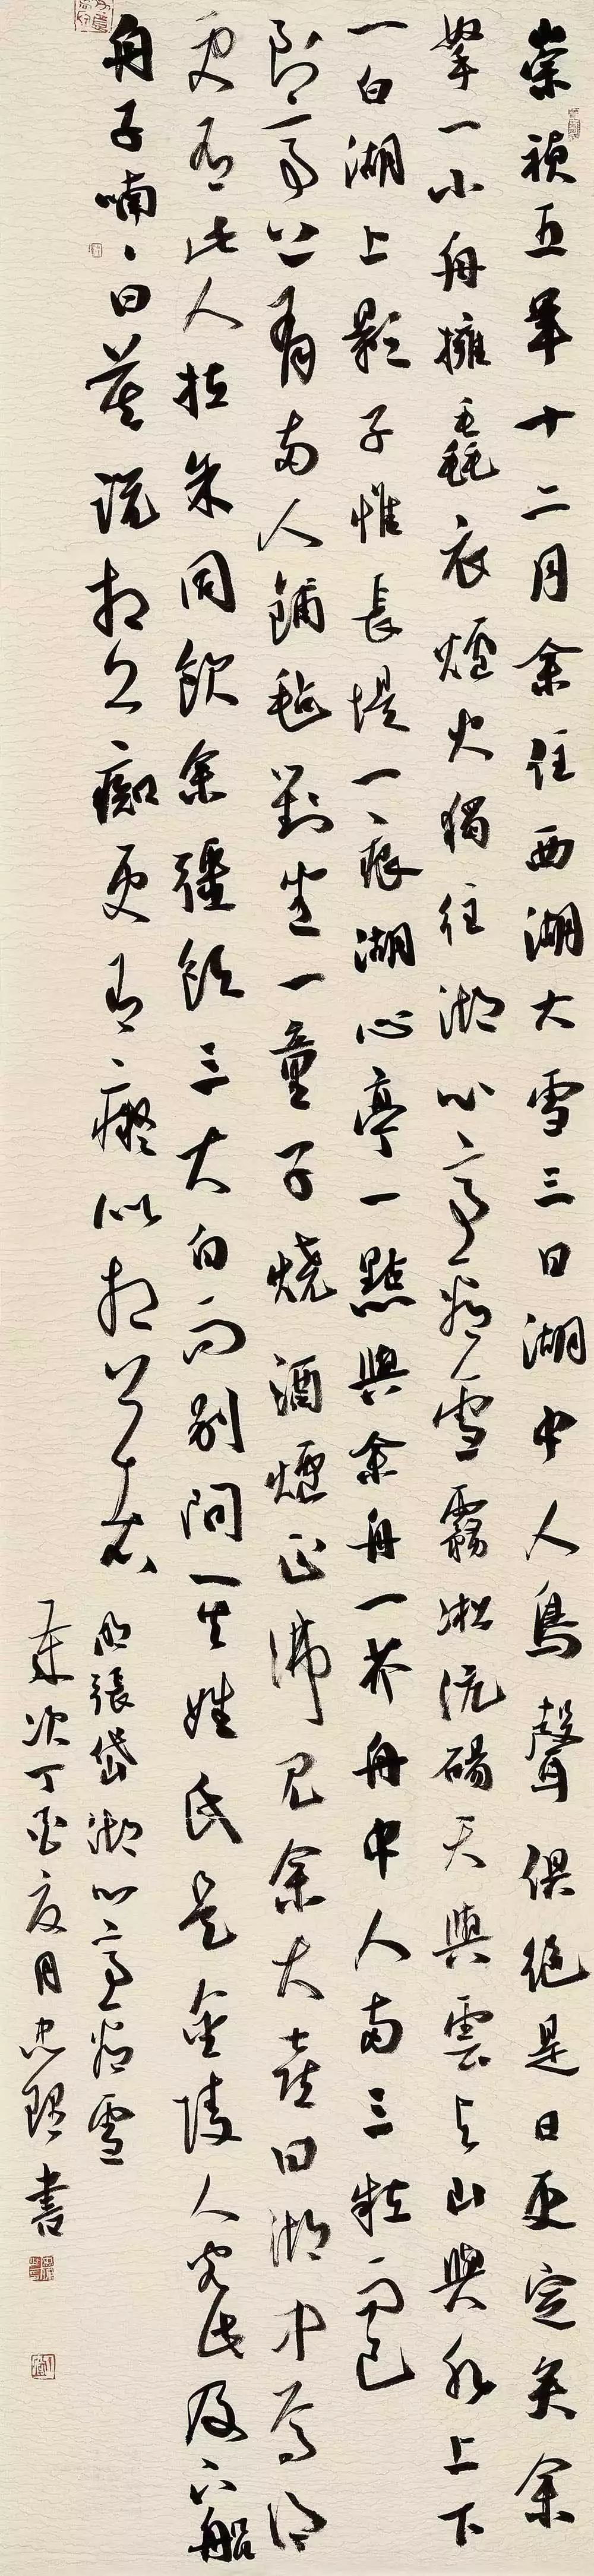 崇禎五年十二月余住西湖大雪三日湖中人鳥聲俱絕是日更定矣余
拏一小舟擁毳衣爐火獨往湖心亭看雪霧凇沆碭天與雲與山與水上下
一白湖上影子惟長堤一痕湖心亭一點與余舟一芥舟中人兩三粒而已
到亭上有兩人鋪氈對坐一童子燒酒爐正沸見余大喜曰湖中焉得
更有此人拉余同飲余強飲三大白而別問其姓氏是金陵人客此及下船
舟子喃喃曰莫說相公癡更有癡似相公者
明張岱湖心亭看雪
歲次丁酉夏月忠堅書